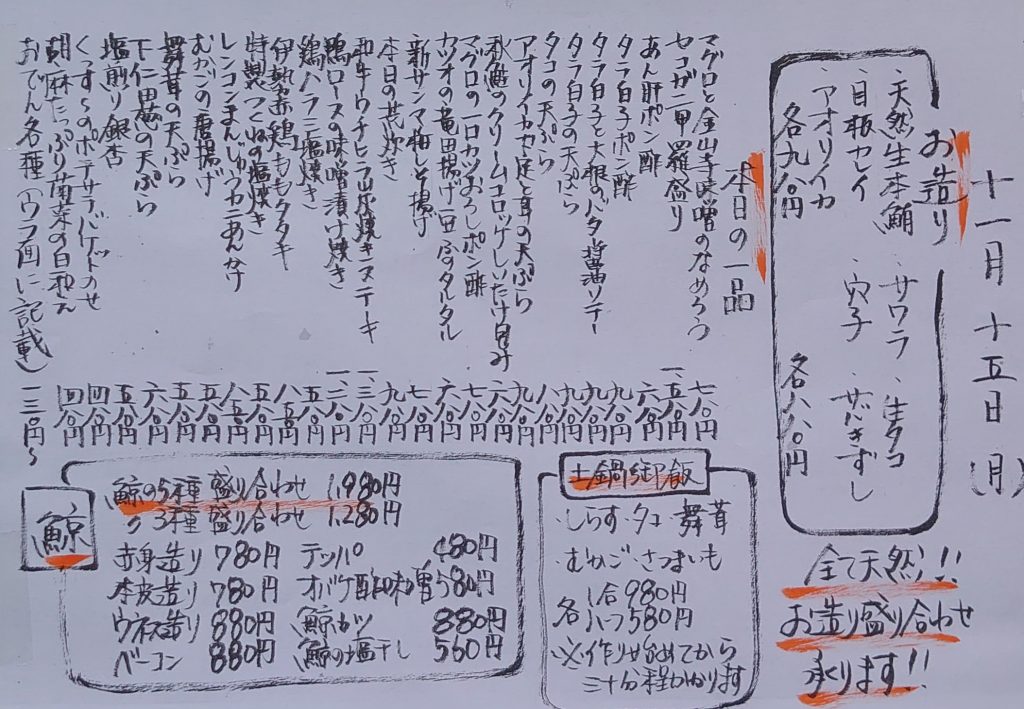 十一月十五日(月)
お造り
・天然生本鮪 ・サワラ ・生タコ
・目板ガレイ ・穴子 ・サバきずし
・アオリイカ
各九八〇円 各八八〇円
全て天然!!
お造り盛り合わせ
承ります!!
本日の一品
マグロと金山寺味噌のなめろう 七八〇円
セコガニ甲羅盛り 一、五八〇円
あん肝ポン酢 六八〇円
タラ白子ポン酢 九八〇円
タラ白子と大根のバタ醤油ソテー 九八〇円
タラ白子の天ぷら 九八〇円
タコの天ぷら 八八〇円
アオリイカゲソ足と耳の天ぷら 九八〇円
秋鮭のクリームコロッケしいたけ包み 六八〇円
マグロの一口カツおろしポン酢 七八〇円
カツオの竜田揚げ豆ふのタルタル 六八〇円
新サンマ梅しそ揚げ 七八〇円
本日の荒炊き 九八〇円
和牛ウチヒラ山炭焼きステーキ 一、三八〇円
鴨ロースの味噌漬け焼き 一、二八〇円
鶏ハラミ塩焼き 五八〇円
伊勢赤鶏ももタタキ 八八〇円
特製つくねの塩焼き 五八〇円
レンコンまんじゅうカニあんかけ 八五〇円
むかごの唐揚げ 五八〇円
舞茸の天ぷら 五八〇円
下仁田葱の天ぷら 六八〇円
塩煎り銀杏 五八〇円
くっすーのポテサラバゲットのせ 四八〇円
胡麻たっぷり菊菜の白和え 四八〇円
おでん各種(ウラ面に記載) 一三〇円〜
土鍋御飯
・しらす・タコ・舞茸
むかご・さつまいも
各 1合980円
ハーフ580円
※作り始めてから
三十分程かかります
鯨
鯨の5種盛り合わせ 1,980円
〃 3種盛り合わせ 1,280円
赤身造り 780円 テッパ 480円
本皮造り 780円 オバケ酢味噌 580円
ウネス造り 880円 鯨カツ 880円
ベーコン 880円 鯨の塩干し 560円